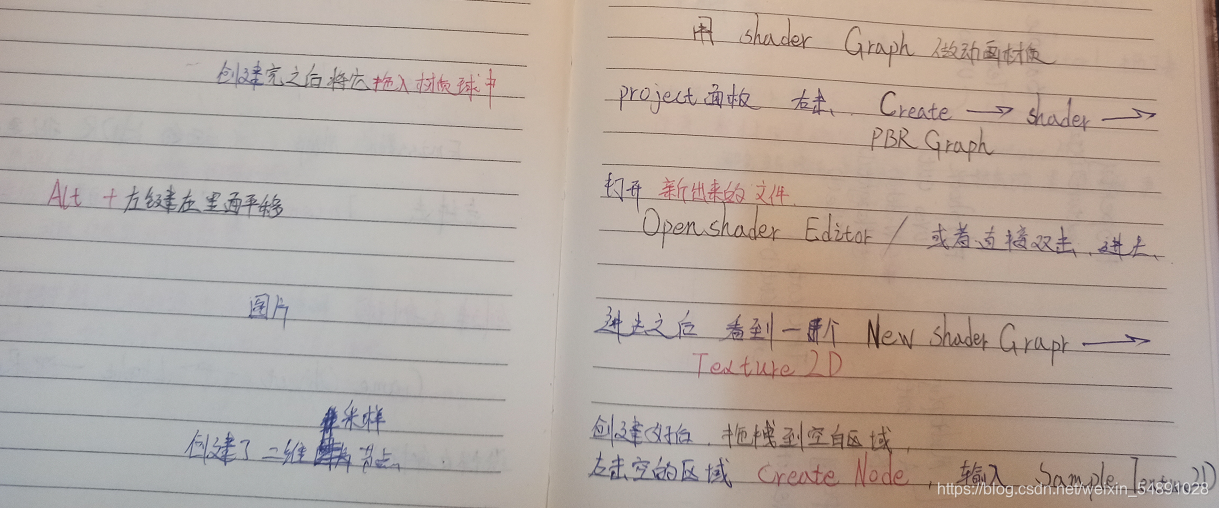 创建完之后将它拖入材质球中
Alt + 左键在里面平移
图片
采样
创建了二维 节点
用 shader Graph 做动画材质
project面板 右击、 Create → shader →
PBR Graph
打开 新出来的文件.
Open shader Editor / 或者直接双击、进去、
进去之后 看到一个 New shader Graph →
Texture 2D
创建好后,拖拽到空白区域,
右击空的区域 Create Node, 输入 Sample Texture2D
https://blog.csdn.net/weixin_54891028